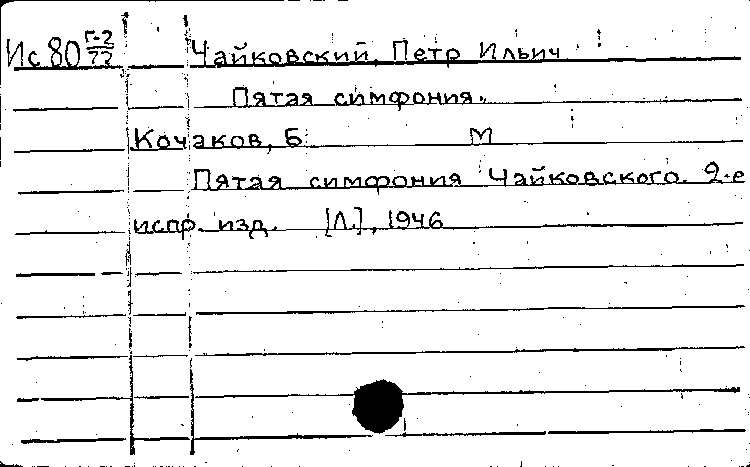 Ис 80 Г-2/72 Чайковский, Петр Ильич
Пятая симфония.
Кочаков, Б М
Пятая симфония Чайковского. 2-е
испр. изд. [Л.], 1946